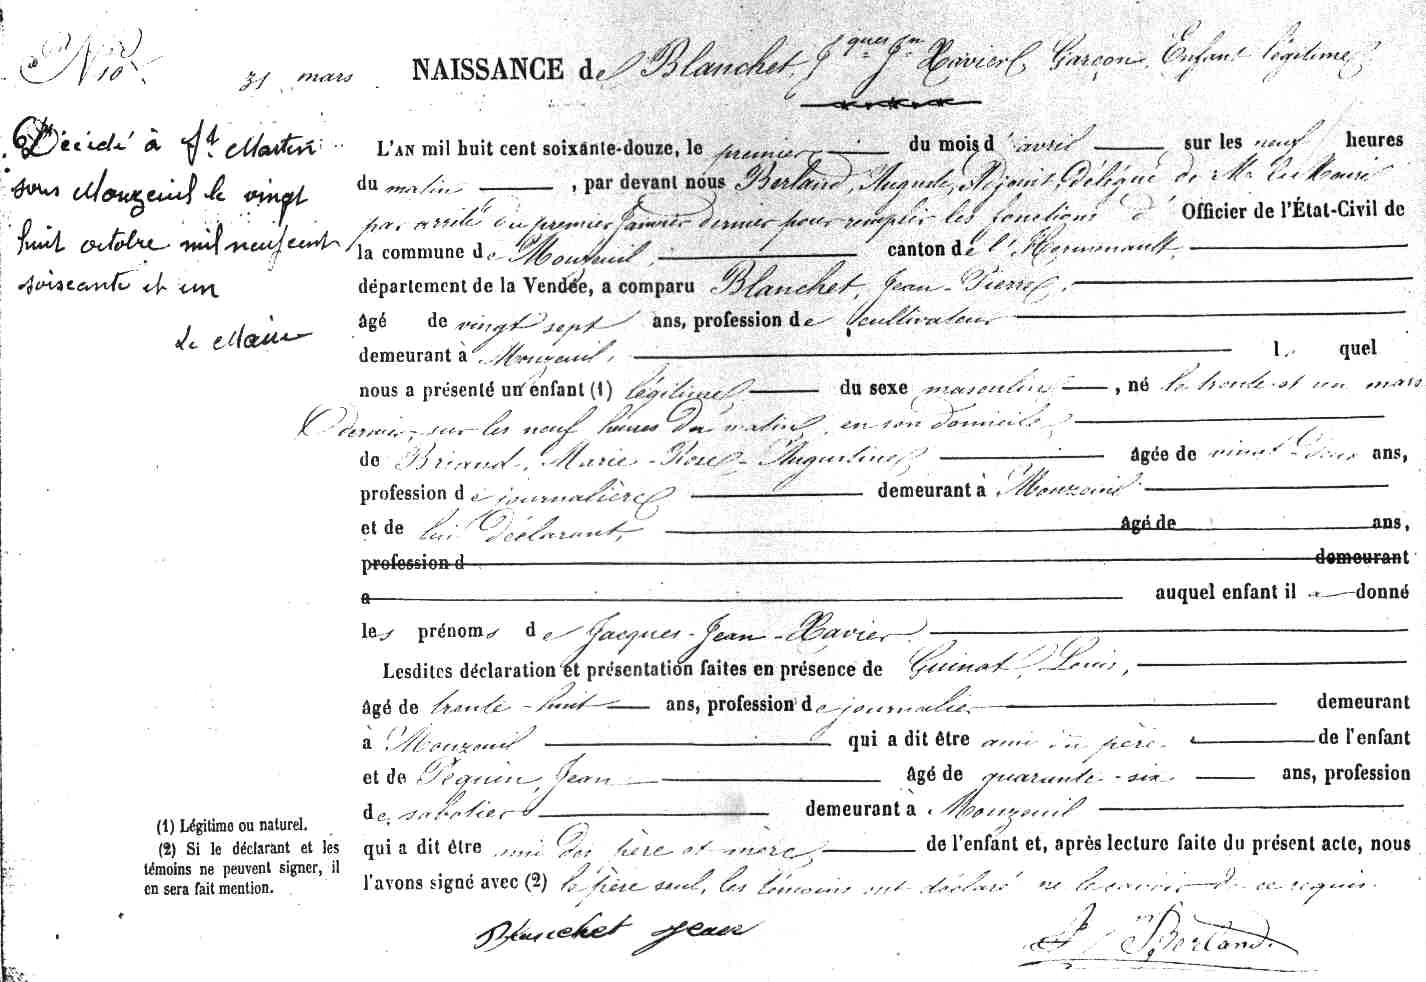 N 10
31 mars
NAISSANCE de Blanchet, Jques Jn Xavier, Garçon, Enfant légitime
Décidé à St Martin
sous Mouzeuil le vingt
huit octobre mil neuf cent
soixante et un
Le Maire
L'AN mil huit cent soixante-douze, le premier du mois d'avril sur les neuf heures
du matin, par devant nous Berland, Auguste, Adjoint, délégué de Mr le Maire
par arrêté du premier Janvier dernier pour remplir les fonctions d'Officier de l'État-Civil de
la commune de Mouzeuil, canton de l'Hermenault,
département de la Vendée, a comparu Blanchet, Jean-Pierre,
âgé de vingt sept ans, profession de cultivateur
demeurant à Mouzeuil, lequel
nous a présenté un enfant (1) légitime du sexe masculin, né le trente et un mars
dernier, sur les neuf heures du matin, en son domicile,
de Briaud, Marie-Rose-Augustine âgée de vingt-deux ans,
profession de journalière demeurant à Mouzeuil
et de lui déclarant, âgé de ans,
profession d demeurant
à auquel enfant il a donné
les prénoms de Jacques-Jean-Xavier.
Lesdites déclaration et présentation faites en présence de Guinot, Louis,
âgé de trente-huit ans, profession de journalier demeurant
à Mouzeuil qui a dit être ami du père de l'enfant
et de Péquin, Jean âgé de quarante-six ans, profession
de sabotier demeurant à Mouzeuil
qui a dit être ami des père et mère de l'enfant et, après lecture faite du présent acte, nous
l'avons signé avec (2) le père seul, les témoins ont déclaré ne le savoir de ce requis.
(1) Légitime ou naturel.
(2) Si le déclarant et les
témoins ne peuvent signer, il
en sera fait mention.
Blanchet Jean
Berland